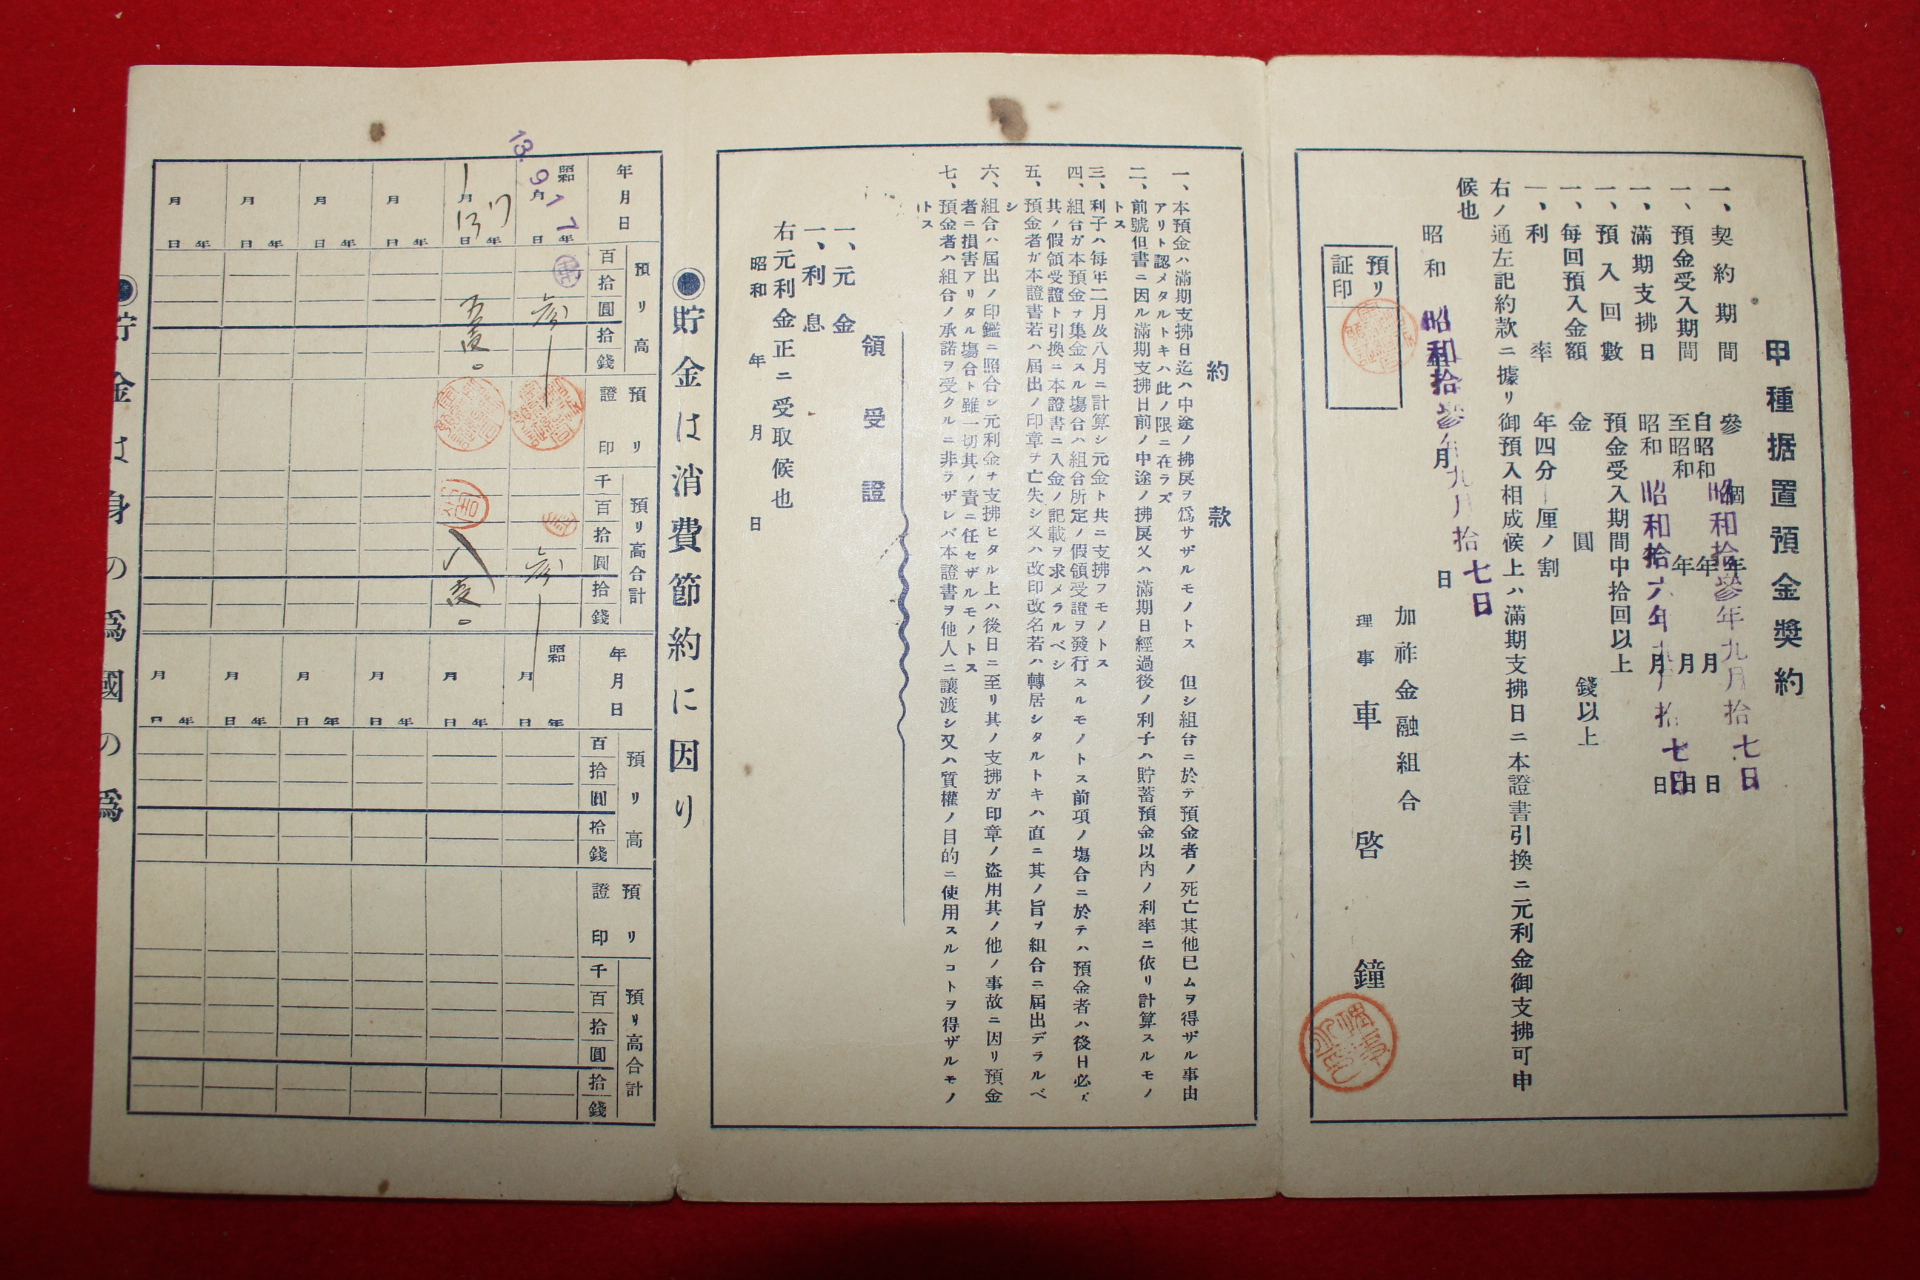 甲種据置預金契約
一、契約期間 參個年
一、預金受入期間 自昭和 年 月 日 昭和拾參年九月拾七日
至昭和 年 月 日
一、滿期支拂日 昭和 年 月 日 昭和拾六年九月拾七日
一、預入回數 預金受入期間中拾回以上
一、每回預入金額 金 圓 錢以上
一、利率 年四分一厘ノ割
右ノ通左記約款ニ據リ御預入相成候上ハ滿期支拂日ニ本證書引換ニ元利金御支拂可申
候也
昭和 年 月 日 昭和拾參年九月拾七日
預リ
証印
加祚金融組合
理事 車啓鐘
約款
一、本預金ハ滿期支拂日迄ハ中途ノ拂戾ヲ爲サザルモノトス 但シ組合ニ於テ預金者ノ死亡其他已ムヲ得ザル事由
アリト認メタルトキハ此ノ限ニ在ラズ
二、前號但書ニ因ル滿期支拂日前ノ中途ノ拂戾又ハ滿期日經過後ノ利子ハ貯蓄預金以內ノ利率ニ依リ計算スルモノ
トス
三、利子ハ每年二月及八月ニ計算シ元金ト共ニ支拂フモノトス
四、組合ガ本預金ヲ集金スル場合ハ組合所定ノ假領受證ヲ發行スルモノトス前項ノ場合ニ於テハ預金者ハ後日必ズ
其ノ假領受證ト引換ニ本證書ニ入金ノ記載ヲ求メラルベシ
五、預金者ガ本證書若ハ屆出ノ印章ヲ亡失シ又ハ改印改名若ハ轉居シタルトキハ直ニ其ノ旨ヲ組合ニ屆出デラルベ
シ
六、組合ハ屆出ノ印鑑ニ照合シ元利金ヲ支拂ヒタル上ハ後日ニ至リ其ノ支拂ガ印章ノ盜用其ノ他ノ事故ニ因リ預金
者ニ損害アリタル場合ト雖一切其ノ責ニ任セザルモノトス
七、預金者ハ組合ノ承諾ヲ受クルニ非ラザレバ本證書ヲ他人ニ讓渡シ又ハ質權ノ目的ニ使用スルコトヲ得ザルモノ
トス
領受證
一、元金
一、利息
右元利金正ニ受取候也
昭和 年 月 日
貯金は消費節約に因り
年月日
預リ高
百拾圓拾錢
預リ
證印
預リ高合計
千百拾圓拾錢
昭和
年 月 日
13.9.17
參
參
年 月 日
年 月 日
年 月 日
年 月 日
年 月 日
年月日
預リ高
百拾圓拾錢
預リ
證印
預リ高合計
千百拾圓拾錢
昭和
年 月 日
年 月 日
年 月 日
年 月 日
年 月 日
年 月 日
貯金は身の爲國の爲